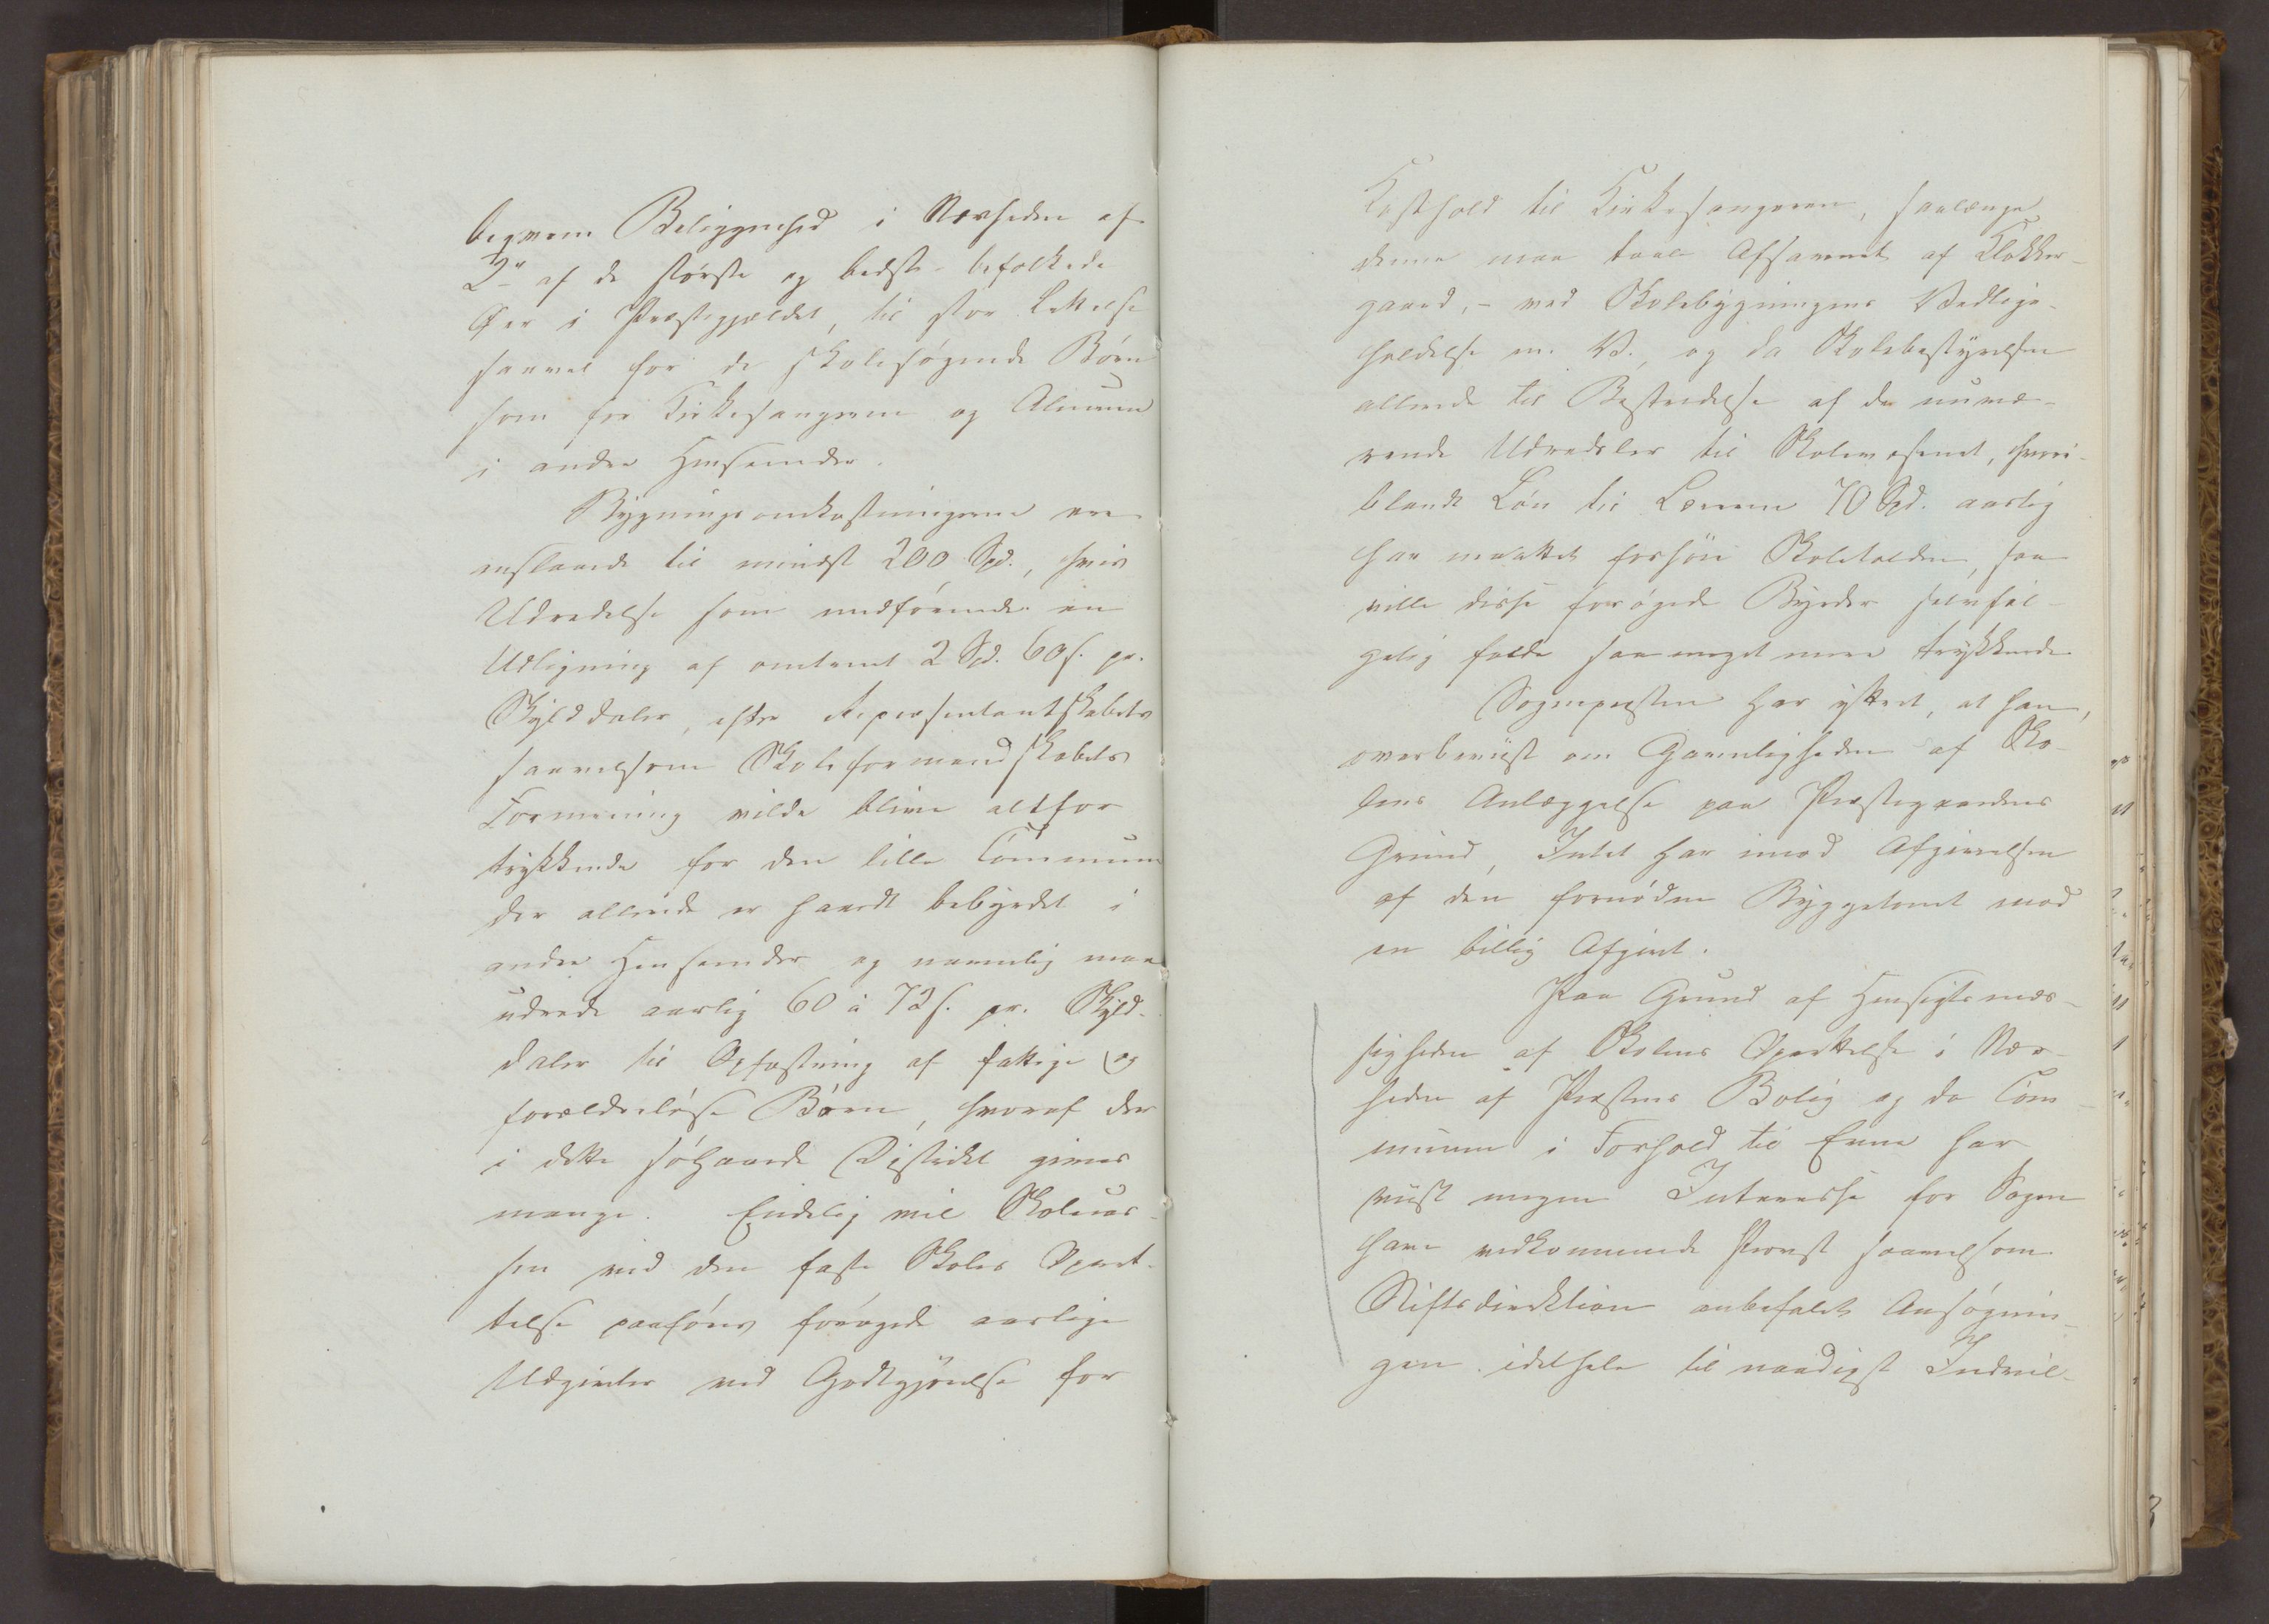 beqvem Beliggenhed i Nærheden af
2de af de største og bedst-befolkede
Øer i Præstegjældet, til stor Lettelse
saavel for de skolesøgende Børn
som for Kirkesangeren og Almuen
i andre Henseender.
Bygningsomkostningerne ere
anslaaede til mindst 200 Spd., hvis
Udredelse som medførende en
Udligning af omtrent 2 Spd. 60 s. pr.
Skylddaler, efter Repræsentantskabets
saavelsom Skoleformandskabets
Formening vilde blive altfor
trykkende for den lille Commune
der allerede er haardt bebyrdet i
andre Henseender og navnlig maa
udrede aarlig 60 à 72 s. pr. Skyld-
daler til Opfostring af fattige og
forældreløse Børn, hvoraf der
i dette søhaarde Distrikt gives
mange. Endelig vil Skolecas-
sen ved den faste Skoles Opret-
telse paaføres forøgede aarlige
Udgivter ved Godtgjørelse for
Kosthold til Kirkesangeren, saalænge
denne maa taale Afsavnet af Klokker-
gaard, - ved Skolebygningens Vedlige-
holdelse m. V., og da Skolebestyrelsen
allerede til Bestridelse af de nuvæ-
rende Udredsler til Skolevæsenet, hvori-
blandt Løn til Læreren 70 Spd. aarlig
har maattet forhøie Skoletolden, saa
ville disse forøgede Byrder selvføl-
gelig falde saa meget mere trykkende.
Sognepresten har yttret, at han,
overbeviist om Gavnligheden af Sko-
lens Anlæggelse paa Præstegaardens
Grund, Intet har imod Afgivelsen
af den fornødne Byggetomt mod
en billig Afgivt.
Paa Grund af Hensigtsmæs-
sigheden af Skolens Oprettelse i Nær-
heden af Præstens Bolig og da Com-
munen i Forhold til Evne har
viist megen Interesse for Sagen
have vedkommende Provst saavelsom
Stiftsdirektion anbefalet Ansøgnin-
gen idethele til naadigst Indvil-